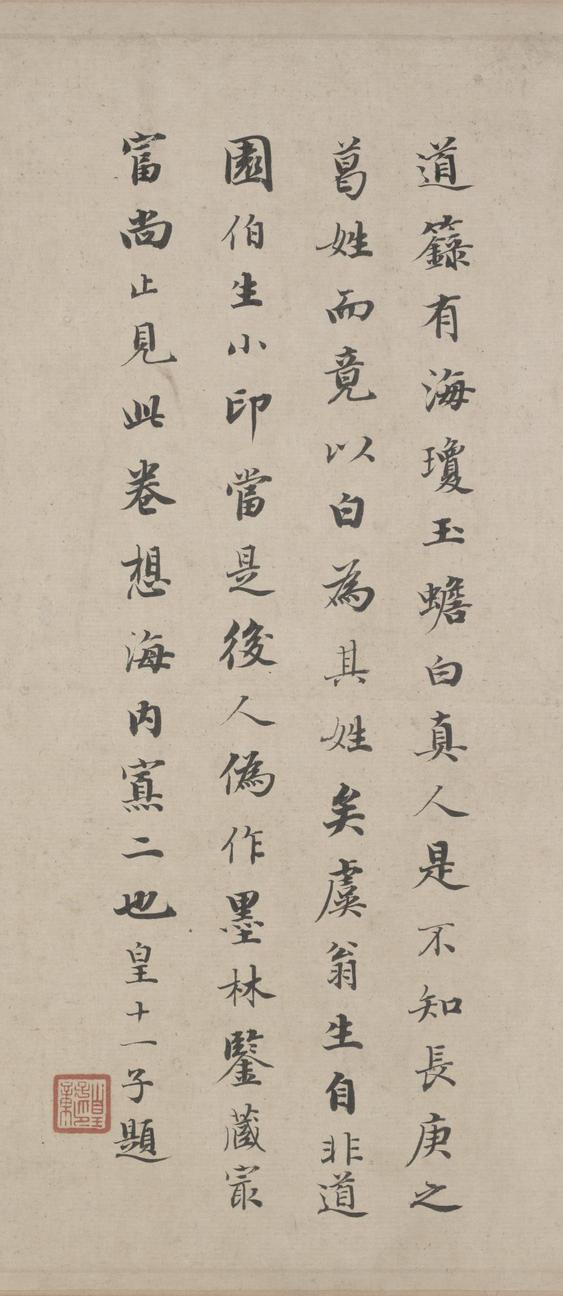 道籙有海瓊玉蟾白真人是不知長庚之
葛姓而竟以白為其姓矣虞翁生自非道
園伯生小印當是後人偽作墨林鑒藏最
富尚止見此卷想海內寡二也皇十一子題